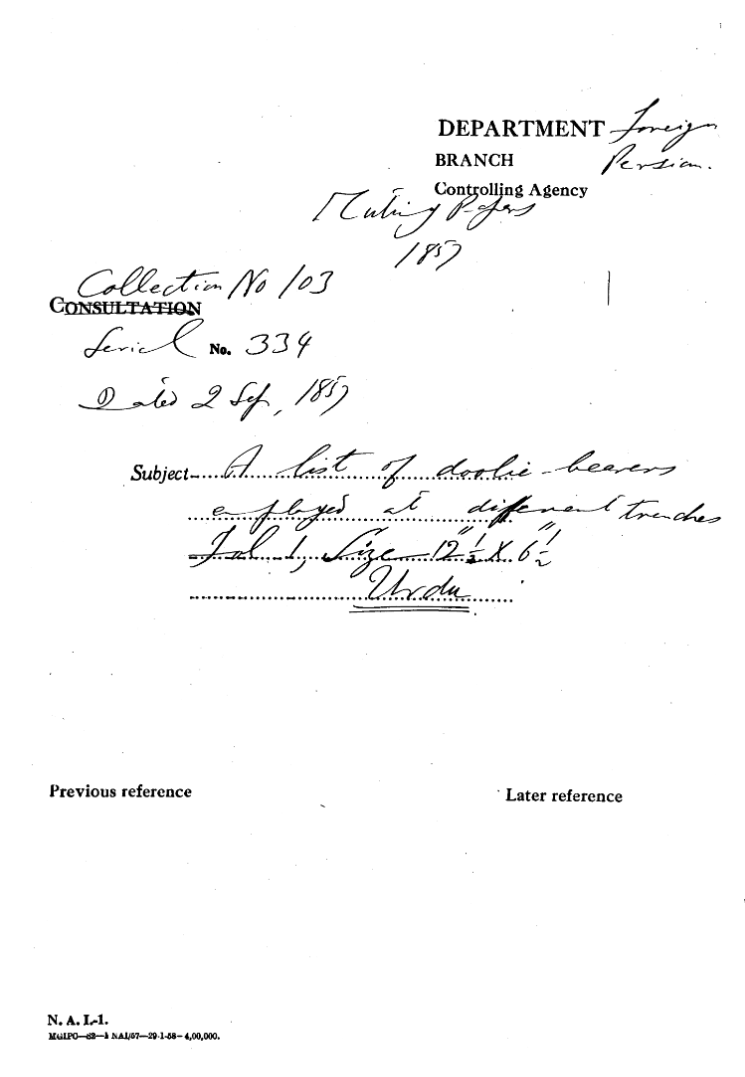 DEPARTMENT Foreign
BRANCH Persian.
Controlling Agency
Mutiny Papers
1857
Collection No 103
CONSULTATION
Serial No. 334
Dated 2 Sep, 1857
Subject A list of doolie-bearers
employed at different trenches
Fol 1, Size 12"½ X 6"½
Urdu
Previous reference
Later reference
N. A. I.-1.
NAI/57—29-1-58—4,00,000.